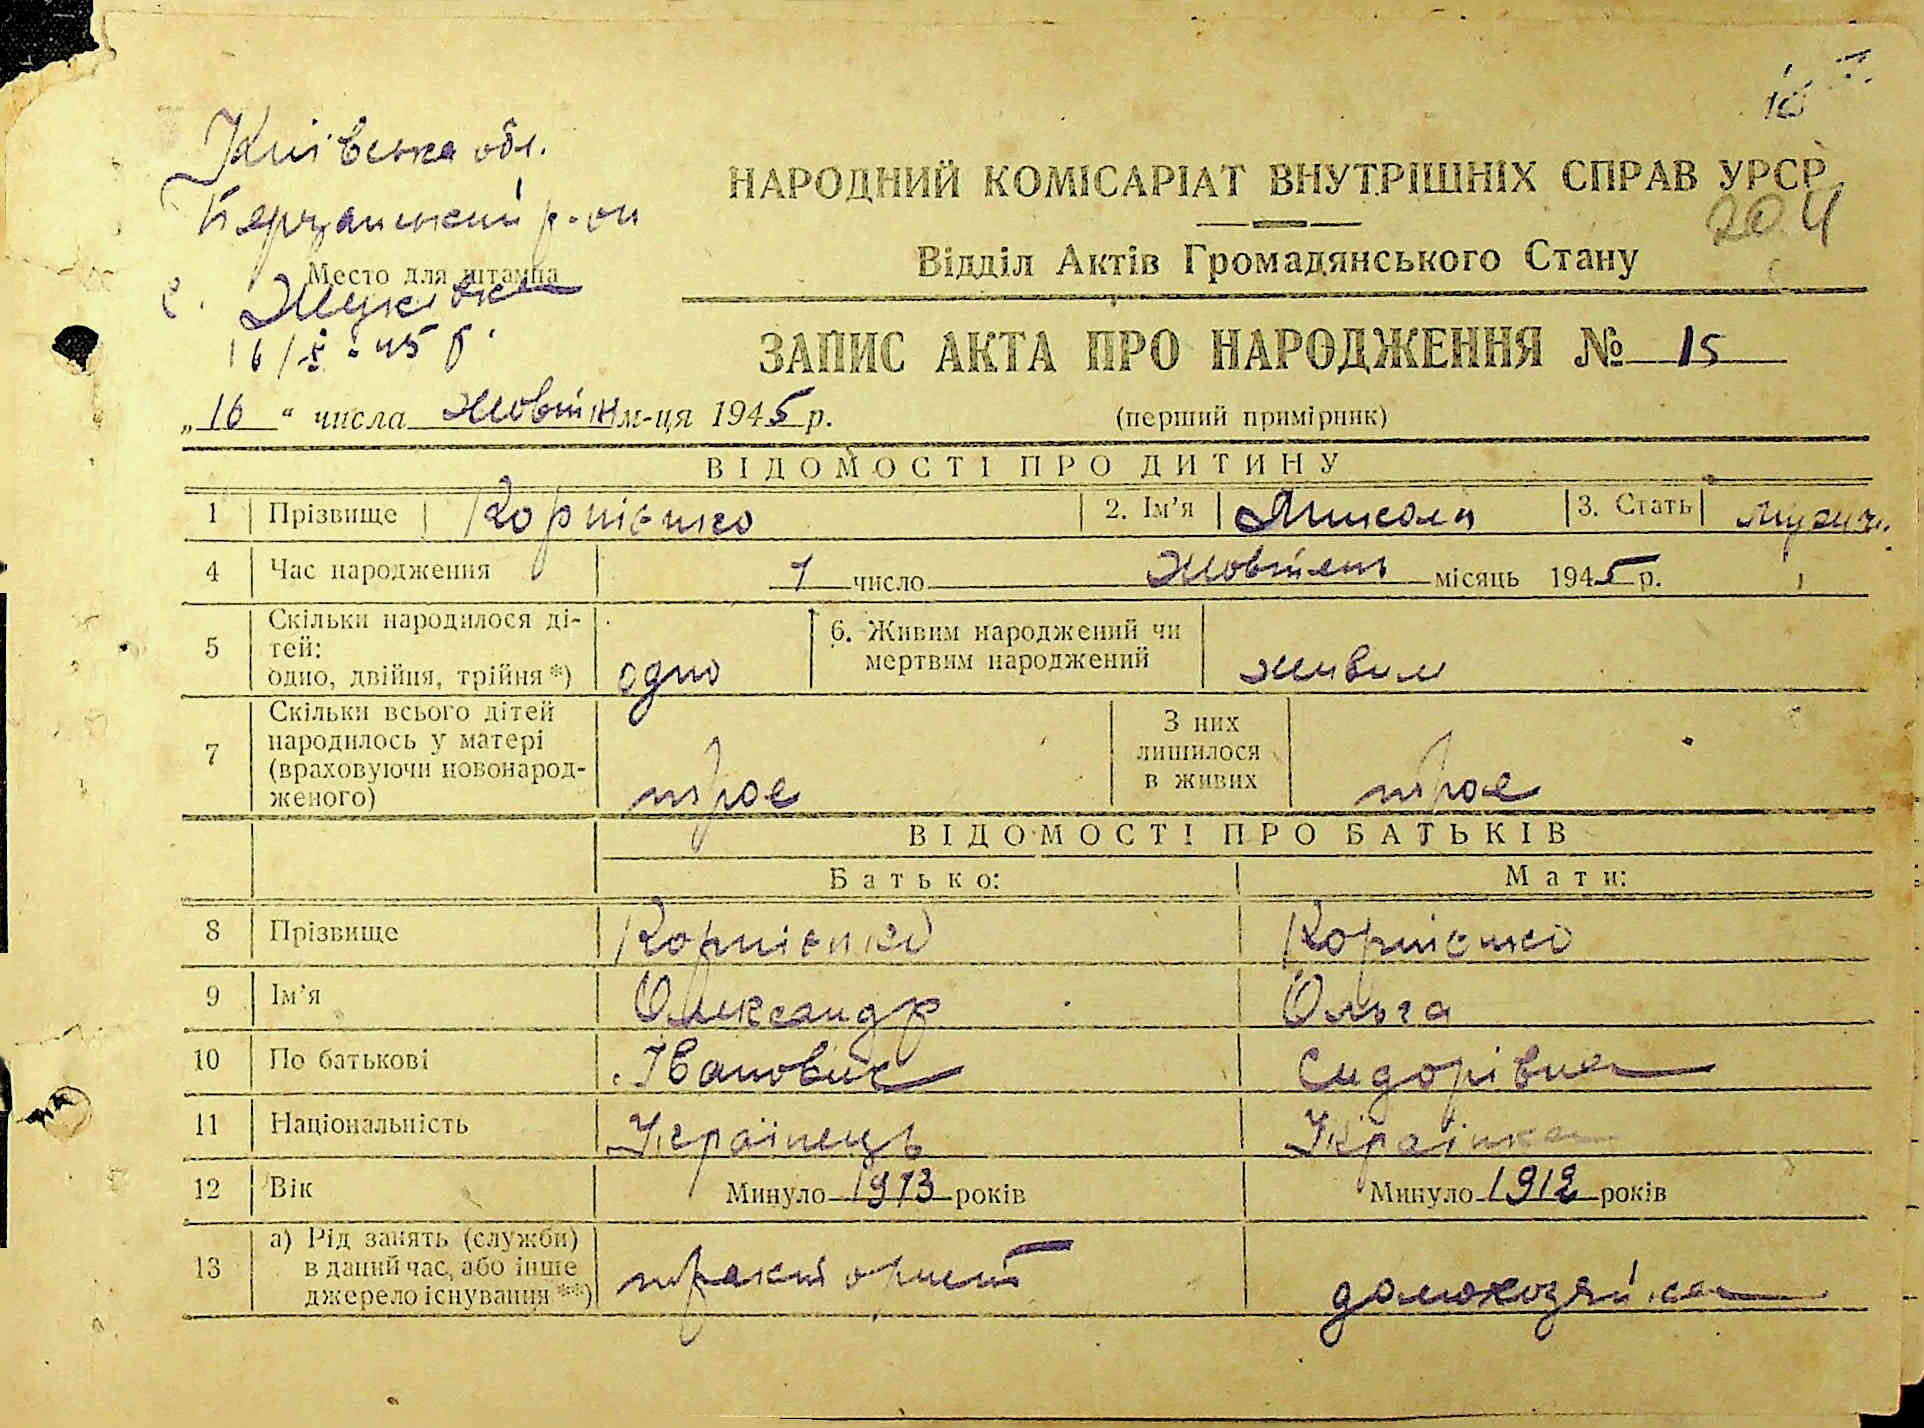 Київська обл.
р-он
Место для штампа
с. Жуківка
16/X-45 р.
НАРОДНИЙ КОМІСАРІАТ ВНУТРІШНІХ СПРАВ УРСР
204
Відділ Актів Громадянського Стану
ЗАПИС АКТА ПРО НАРОДЖЕННЯ № 15
„16“ числа Жовтня м-ця 1945 р. (перший примірник)
ВІДОМОСТІ ПРО ДИТИНУ
1 Прізвище Корнієнко 2. Ім’я Микола 3. Стать мужч.
4 Час народження 1 число Жовтень місяць 1945 р.
5 Скільки народилося ді-
тей:
одно, двійня, трійня *) одно 6. Живим народжений чи
мертвим народжений живим
7 Скільки всього дітей
народилось у матері
(враховуючи новонарод-
женого) троє З них
лишилося
в живих троє
ВІДОМОСТІ ПРО БАТЬКІВ
Батько: Мати:
8 Прізвище Корнієнко Корнієнко
9 Ім’я Олександр Ольга
10 По батькові Іванович Сидорівна
11 Національність Українець Українка
12 Вік Минуло 1913 років Минуло 1912 років
13 а) Рід занять (служби)
в даний час, або інше
джерело існування **) тракторист домохозяйка